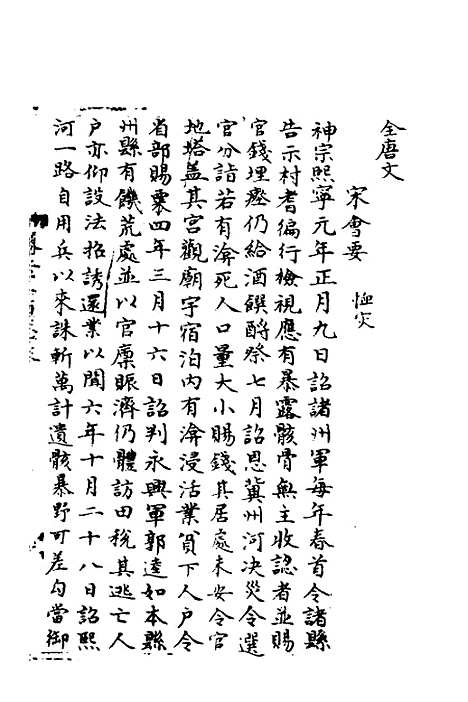 全唐文
宋會要 恤灾
神宗熙寧元年正月九日詔諸州軍每年春首令諸縣
告示村耆徧行檢視應有暴露骸骨無主收認者並賜
官錢埋瘞仍給酒饌酹祭七月詔恩冀州河决災令選
官分詣若有渰死人口量大小賜錢其居處未安令官
地搭盖其宫觀廟宇宿泊内有渰浸活業貧下人户令
省部賜粟四年三月十六日詔判永興軍郭逵如本縣
州縣有饑荒處並以官廩賑濟仍體訪田税其逃亡人
户亦仰設法招誘還業以聞六年十月二十八日詔熙
河一路自用兵以來誅斬萬計遺骸暴野可差勾當御